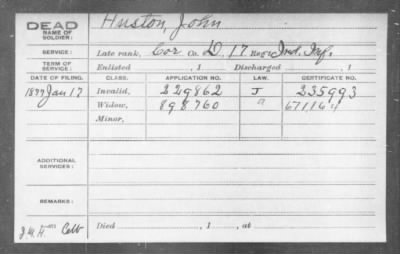 DEAD
NAME OF SOLDIER: Huston, John
SERVICE: Late rank, Cor Co. D, 17 Reg't Ind. Inf.
TERM OF SERVICE: Enlisted , 1 Discharged , 1
DATE OF FILING. CLASS. APPLICATION NO. LAW. CERTIFICATE NO.
1877 Jan 17 Invalid, 229862 J 235993
Widow, 898760
Minor,
ADDITIONAL SERVICES:
REMARKS:
Died , 1 , at